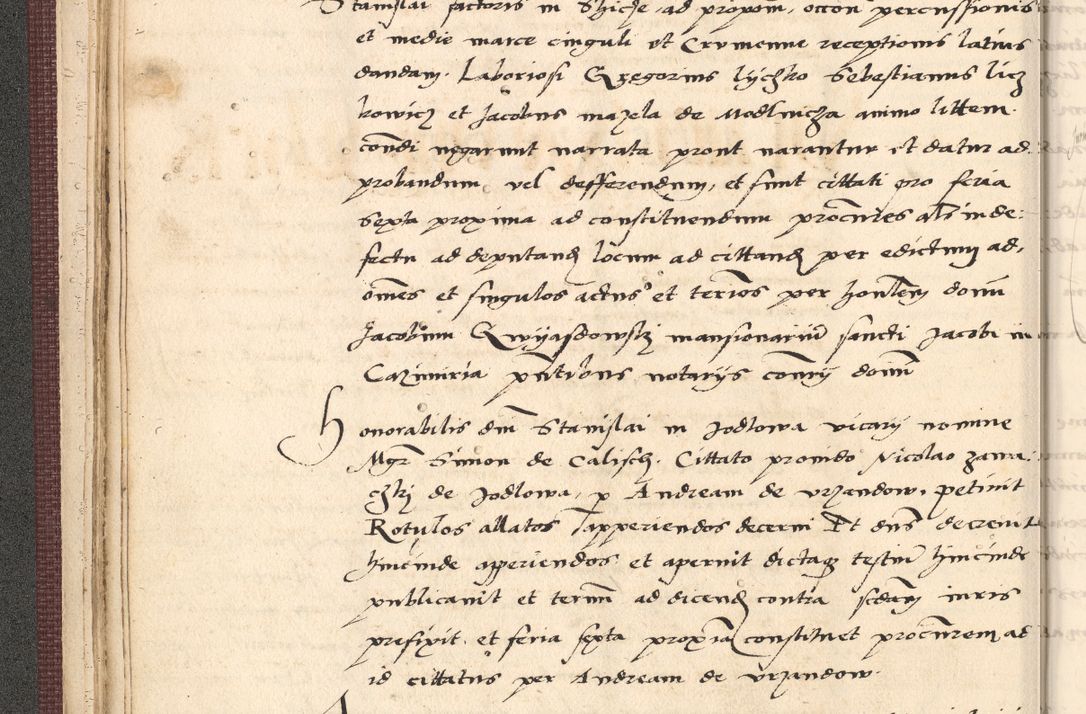 Stanislai factoris in Shicze ad propom, occon percussionis
et medie marce cinguli et Crumenne receptionis latius
dandam. Laboriosi Gregorius lychko Sebestianus licz
kowicz et Jacobus mazela de Modlnicza animo littem.
contdi negarunt narrata prout narantur et datur ad
probandum vel defferendum, et sunt cittati pro feria
sexta proxima ad constituendum procures als in de:
fectu ad deputand locum ad cittand per edictum ad,
omnes et singulos actus et terios per honlem domi
Jacobum Gwyasdowskj mansionariu sancti Jacobi in
Cazimiria pntibus notarys conry domi
Honorabilis dni Stanislai in Jodlowa vicary nomine
Mgr Simon de Calisch. Cittato provido Nicolao zawa:
czkj de Jodlowa, p Andream de vrzandow, petiuit
Rotulos allatos apperiendos decerni Et dns decreuit
hincinde apperiendos et aperuit dictaq testiu hincinde
publicauit et termi ad dicend contra scdam iuris
prefixit, et feria sexta proxia constituet procurem ad
id cittatus per Andream de vrzandow.